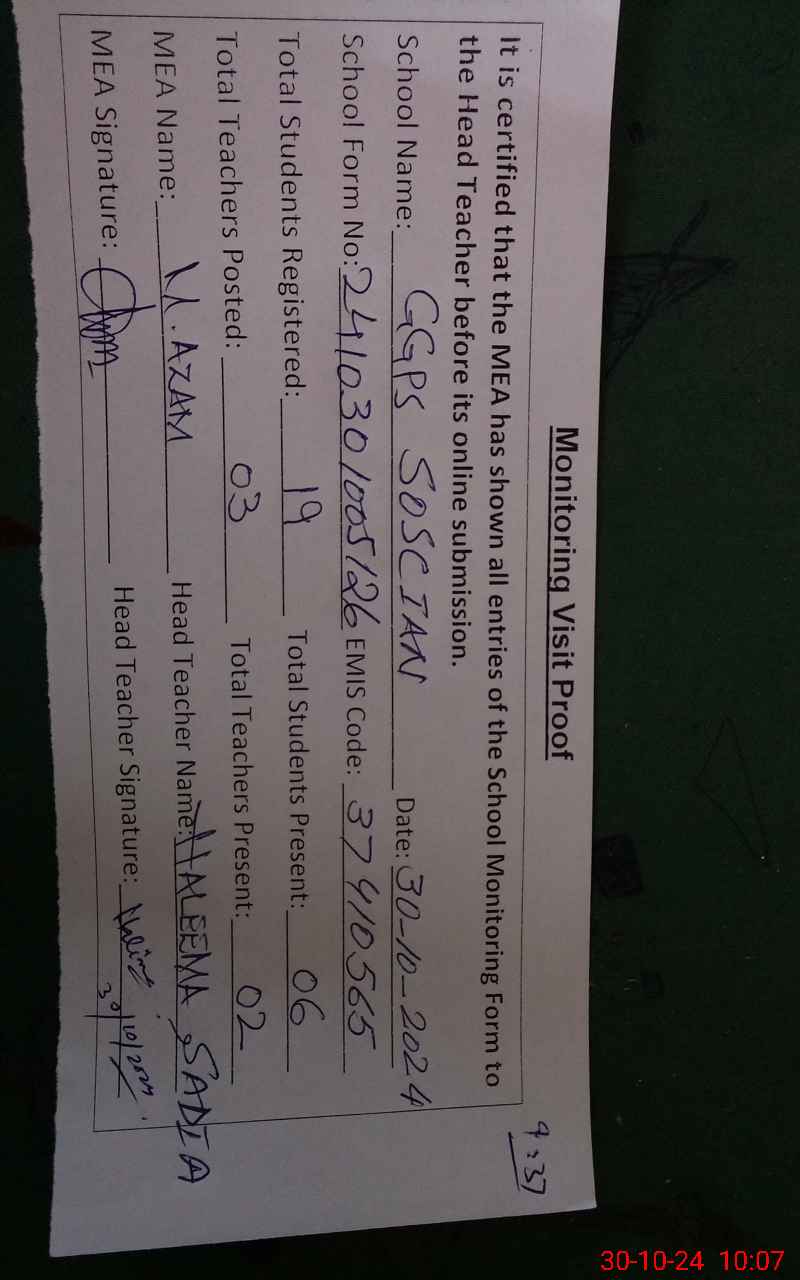 Monitoring Visit Proof
9:37
It is certified that the MEA has shown all entries of the School Monitoring Form to
the Head Teacher before its online submission.
School Name: GGPS SOSCIAN Date: 30-10-2024
School Form No: 2410301005126 EMIS Code: 37410565
Total Students Registered: 19 Total Students Present: 06
Total Teachers Posted: 03 Total Teachers Present: 02
MEA Name: M. AZAM Head Teacher Name: HALEEMA SADIA
MEA Signature: Head Teacher Signature:
30/10/2024
30-10-24 10:07